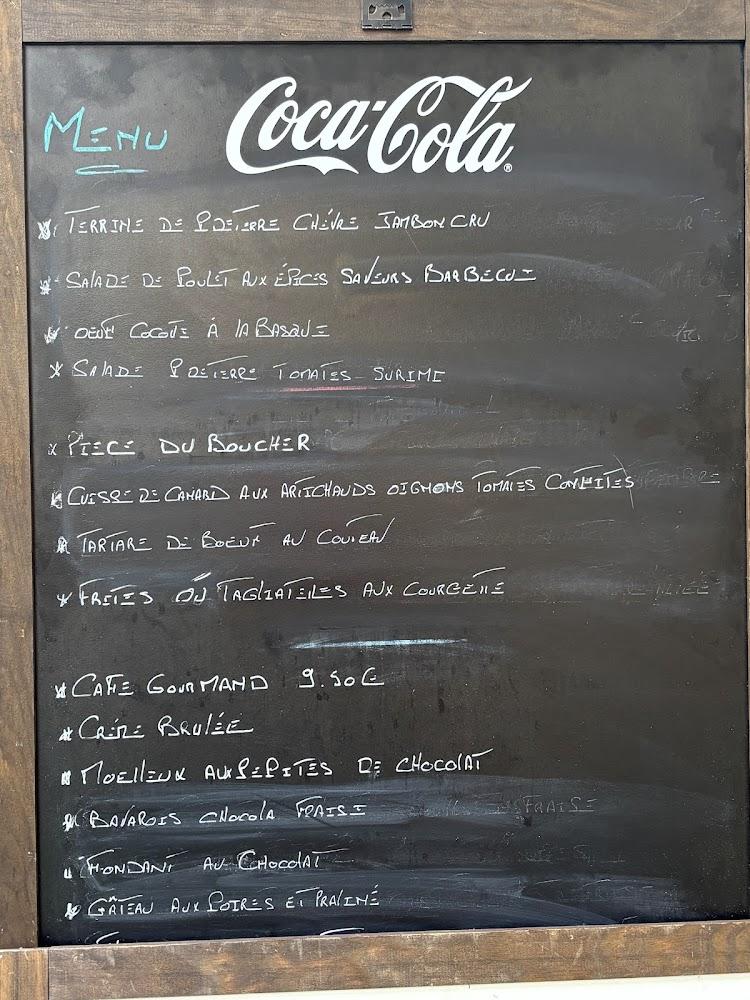 MENU
Coca-Cola
TERRINE DE P DE TERRE CHÈVRE JAMBON CRU
SALADE DE POULET AUX ÉPICES SAVEURS BARBECUE
OEUF COCOTE À LA BASQUE
SALADE P DE TERRE TOMATES SURIMI
PIECE DU BOUCHER
CUISSE DE CANARD AUX ARTICHAUDS OIGNONS TOMATES CONFITES
TARTARE DE BOEUF AU COUTEAU
FRITES OU TAGLIATELLES AUX COURGETTE
CAFE GOURMAND 9.50€
CRÉME BRULÉE
MOELLEUX AUX PEPITES DE CHOCOLAT
BAVAROIS CHOCOLA FRAISE
FONDANT AU CHOCOLAT
GÂTEAU AUX POIRES ET PRALINÉ